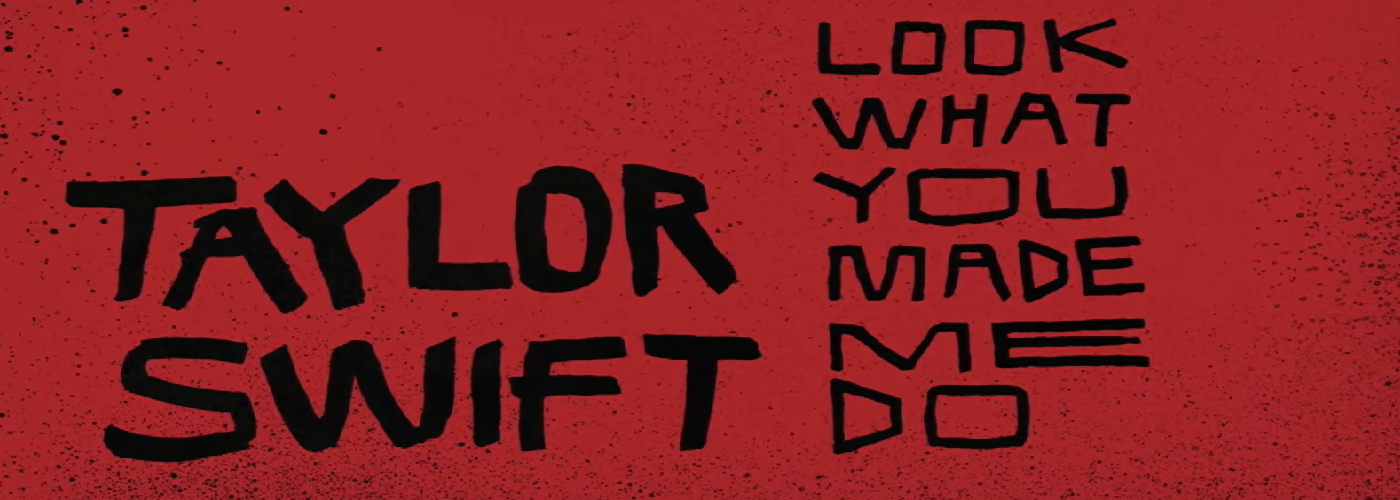 TAYLOR
SWIFT
LOOK
WHAT
YOU
MADE
ME
DO